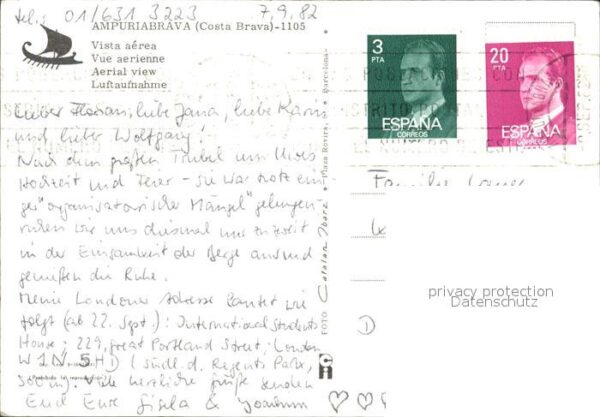 tel.: 01/631 3223 7.9.82
AMPURIABRAVA (Costa Brava)-1105
Vista aérea
Vue aerienne
Aerial view
Luftaufnahme
Lieber Florian, liebe Jana, liebe Karin
und lieber Wolfgang!
Nach dem großen Trubel um Uwes
Hochzeit und Feier - sie war trotz eini-
ger "organisatorische Mängel" gelungen -
ruhen wir uns diesmal nur zu zweit
in der Einsamkeit der Berge aus und
genießen die Ruhe.
Meine Londoner Adresse lautet wie
folgt (ab 22. Sept.): International Students
House; 229, great Portland Street; London
W1N 5HD (südl. d. Regents Park,
300m). Viele herzliche Grüße senden
Euch Eure Gisela & Joachim
FOTO
Catalan Ibarz
Plaza Rovira,
Barcelona-
3
PTA
ESPAÑA
CORREOS
20
PTA
ESPAÑA
CORREOS
Familie
D
privacy protection
Datenschutz